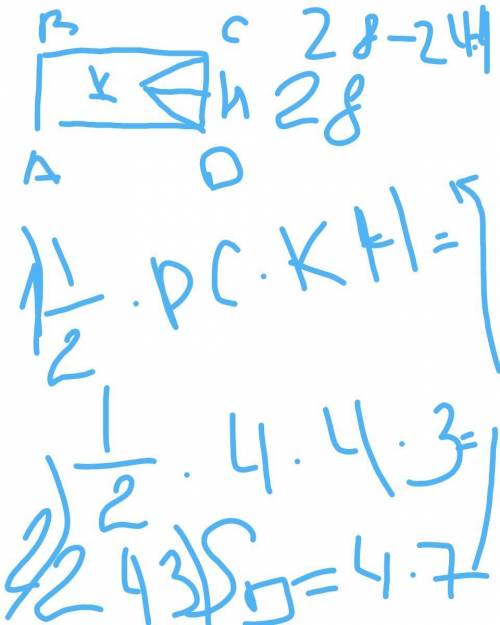 B C 28-24
K H 28
A D
1) 1/2 · DC · KH =
1/2 · 4 · 4 · 3 =
2) 2 4 3) S▭ = 4 · 7